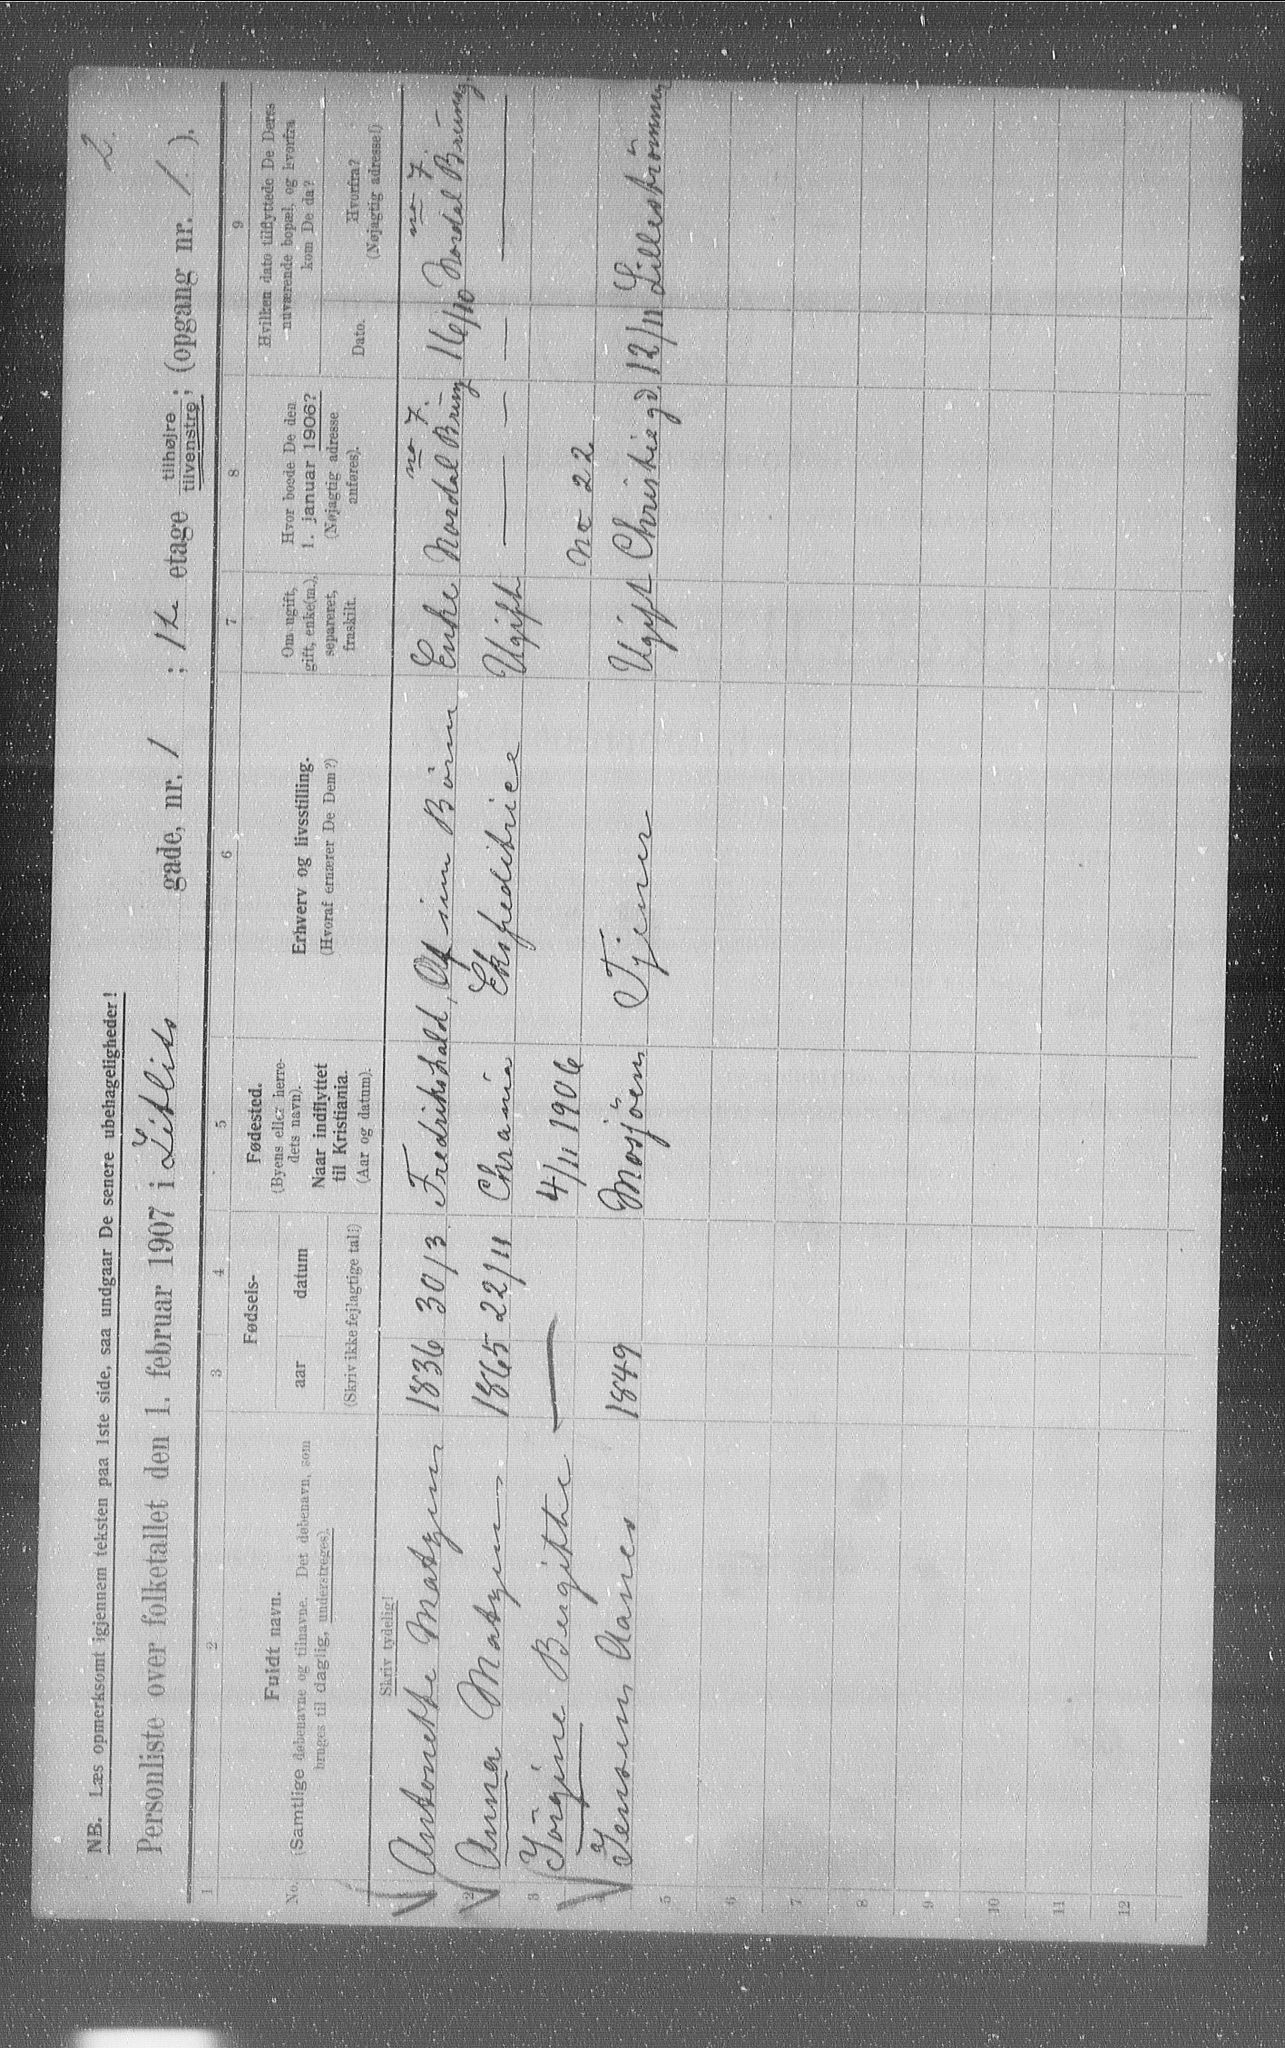 2.
NB. Læs opmerksomt igjennem teksten paa 1ste side, saa undgaar De senere ubehageligheder!
Personliste over folketallet den 1. februar 1907 i Lefblis gade, nr. 1 ; 1ste etage tilhøjre tilvenstre ; (opgang nr. 1. ).
1 2 3 4 5 6 7 8 9
No. Fuldt navn. (Samtlige døbenavne og tilnavne. Det døbenavn, som bruges til daglig, understreges).
Fødsels- aar datum (Skriv ikke fejlagtige tal!)
Fødested. (Byens eller herredets navn). Naar indflyttet til Kristiania. (Aar og datum).
Erhverv og livsstilling. (Hvoraf ernærer De Dem?)
Om ugift, gift, enke(m.), separeret, fraskilt.
Hvor boede De den 1. januar 1906? (Nøjagtig adresse anføres).
Hvilken dato tilflyttede De Deres nuværende bopæl, og hvorfra kom De da?
Dato. Hvorfra? (Nøjagtig adresse!)
Skriv tydelig!
no 7. no 7.
1 Antonette Matzen 1836 30/3 Fredrikshald, Af sine Børn Enke Nordal Brung 16/10 Nordal Brunsg.
2 Anna Matzen 1865 22/11 Chrania Ekspeditrice Ugift — — — — —
3 Jörgine Bergitte — 4/11 1906 no 22
4 Jensen Aanes 1849 Mosjöen Tjener Ugift Christie gd. 12/11 Lilleströmmen
5
6
7
8
9
10
11
12